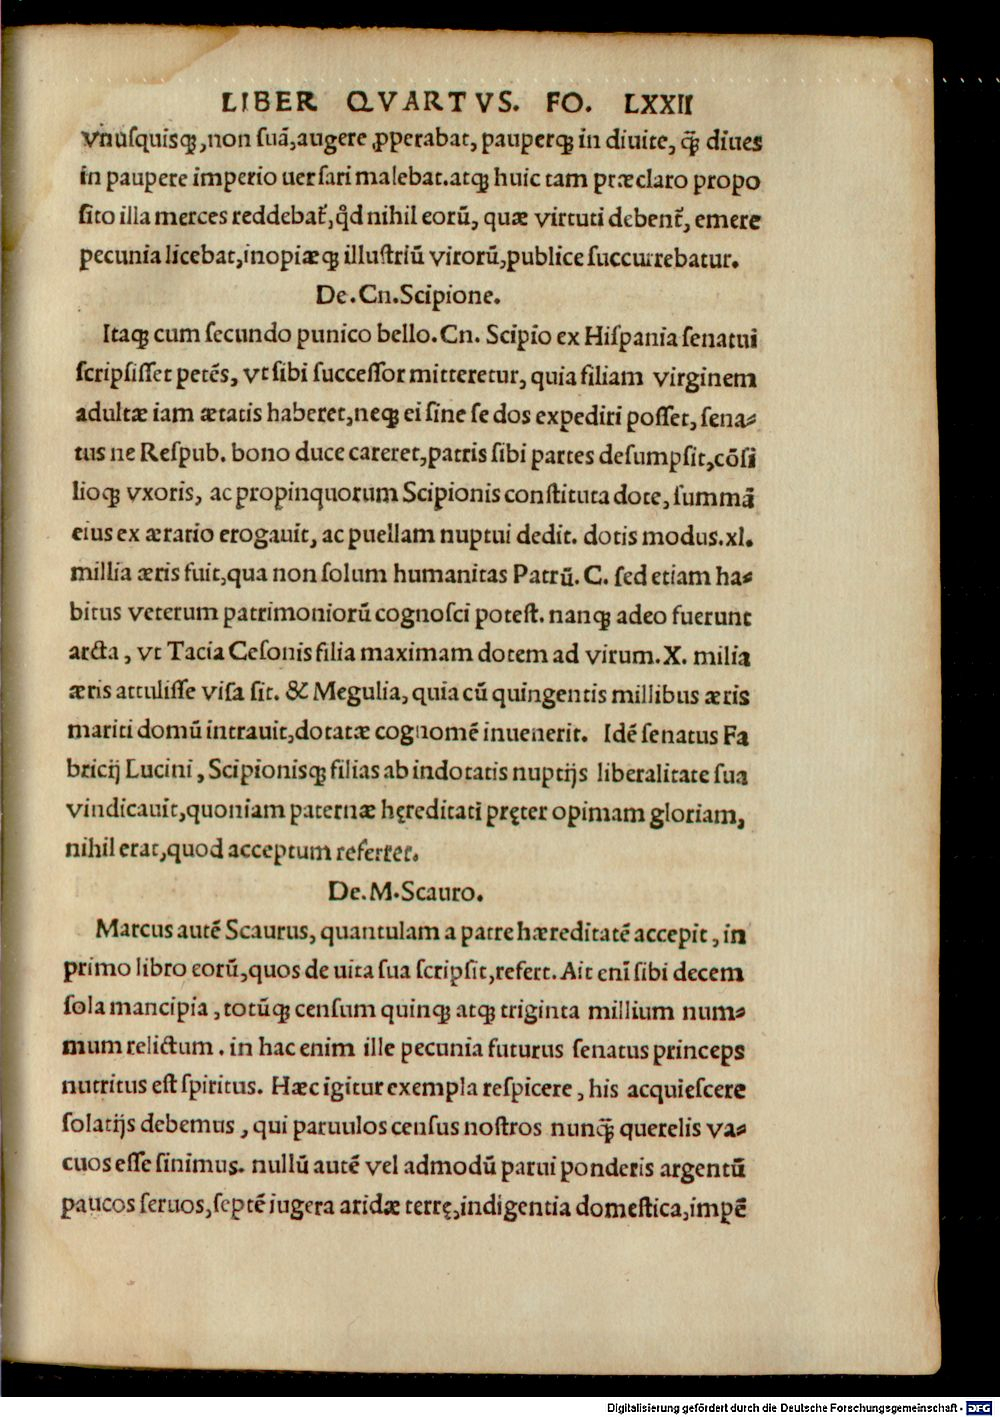 LIBER QVARTVS. FO. LXXII
vnusquisqꝫ,non suã,augere ꝓperabat, pauperqꝫ in diuite, q̃ꝫ diues
in paupere imperio uersari malebat.atqꝫ huic tam præclaro propo
sito illa merces reddebat̃,qd̃ nihil eorũ, quæ virtuti debent̃, emere
pecunia licebat,inopiæqꝫ illustriũ virorũ,publice succurrebatur.
De.Cn.Scipione.
Itaqꝫ cum secundo punico bello.Cn. Scipio ex Hispania senatui
scripsisset petẽs, vt sibi successor mitteretur, quia filiam virginem
adultæ iam ætatis haberet,neqꝫ ei sine se dos expediri posset, sena⸗
tus ne Respub. bono duce careret,patris sibi partes desumpsit,cõsi
lioqꝫ vxoris, ac propinquorum Scipionis constituta dote, summã
eius ex ærario erogauit, ac puellam nuptui dedit. dotis modus.xl.
millia æris fuit,qua non solum humanitas Patrũ. C. sed etiam ha⸗
bitus veterum patrimoniorũ cognosci potest. nanqꝫ adeo fuerunt
arcta, vt Tacia Cesonis filia maximam dotem ad virum.X. milia
æris attulisse visa sit. & Megulia, quia cũ quingentis millibus æris
mariti domũ intrauit,dotatæ cognomẽ inuenerit. Idẽ senatus Fa
bricij Lucini, Scipionisqꝫ filias ab indotatis nuptijs liberalitate sua
vindicauit,quoniam paternæ hęreditati pręter opimam gloriam,
nihil erat,quod acceptum referret.
De.M.Scauro.
Marcus autẽ Scaurus, quantulam a patre hæreditatẽ accepit, in
primo libro eorũ,quos de uita sua scripsit,refert. Ait enĩ sibi decem
sola mancipia, totũqꝫ censum quinqꝫ atqꝫ triginta millium num⸗
mum relictum. in hac enim ille pecunia futurus senatus princeps
nutritus est spiritus. Hæc igitur exempla respicere, his acquiescere
solatijs debemus, qui paruulos census nostros nunq̃ꝫ querelis va⸗
cuos esse sinimus. nullũ autẽ vel admodũ parui ponderis argentũ
paucos seruos,septẽ iugera aridæ terrę,indigentia domestica,impẽ
Digitalisierung gefördert durch die Deutsche Forschungsgemeinschaft - DFG